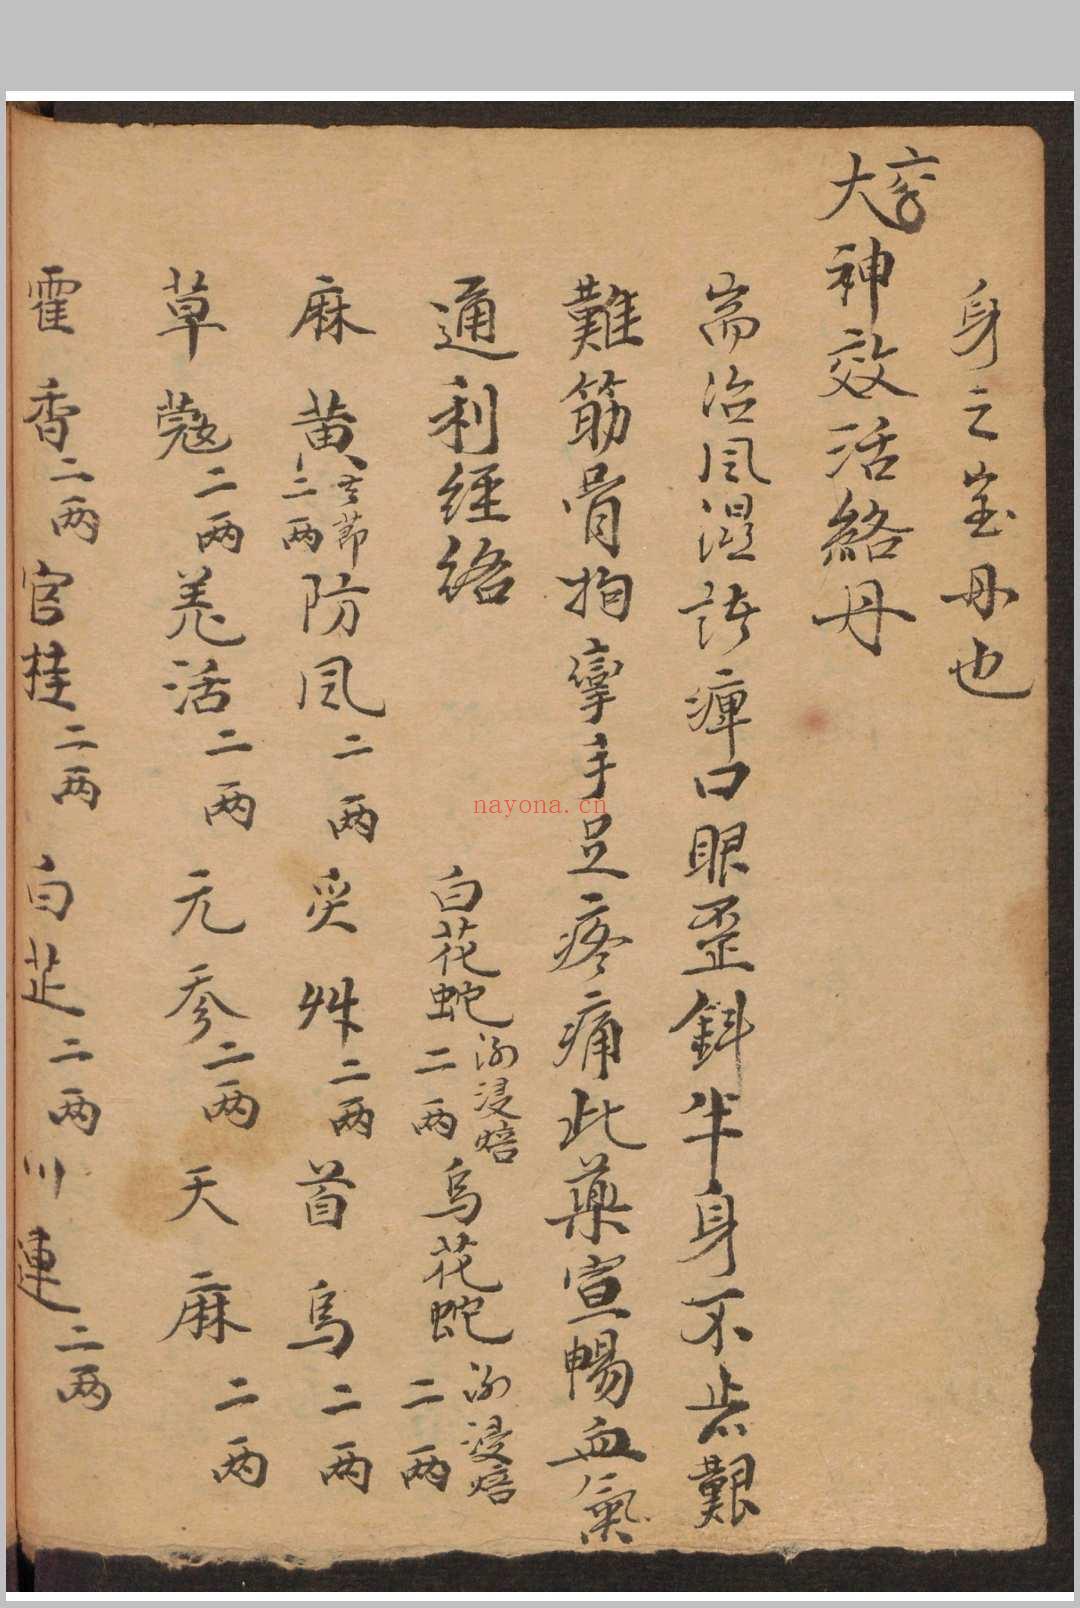 身之宝丹也
大神效活絡丹
耑治風濕諸痺口眼歪斜半身不遂艱
難筋骨拘攣手足疼痛此藥宣暢血氣
通利經絡
白花蛇二两 酒浸焙 烏花蛇二两 酒浸焙
麻黄 去節 二两 防風二两 炙艸二两 首烏二两
草蔻二两 羗活二两 元参二两 天麻二两
霍香二两 官桂二两 白芷二两 川連二两
nayona.cn